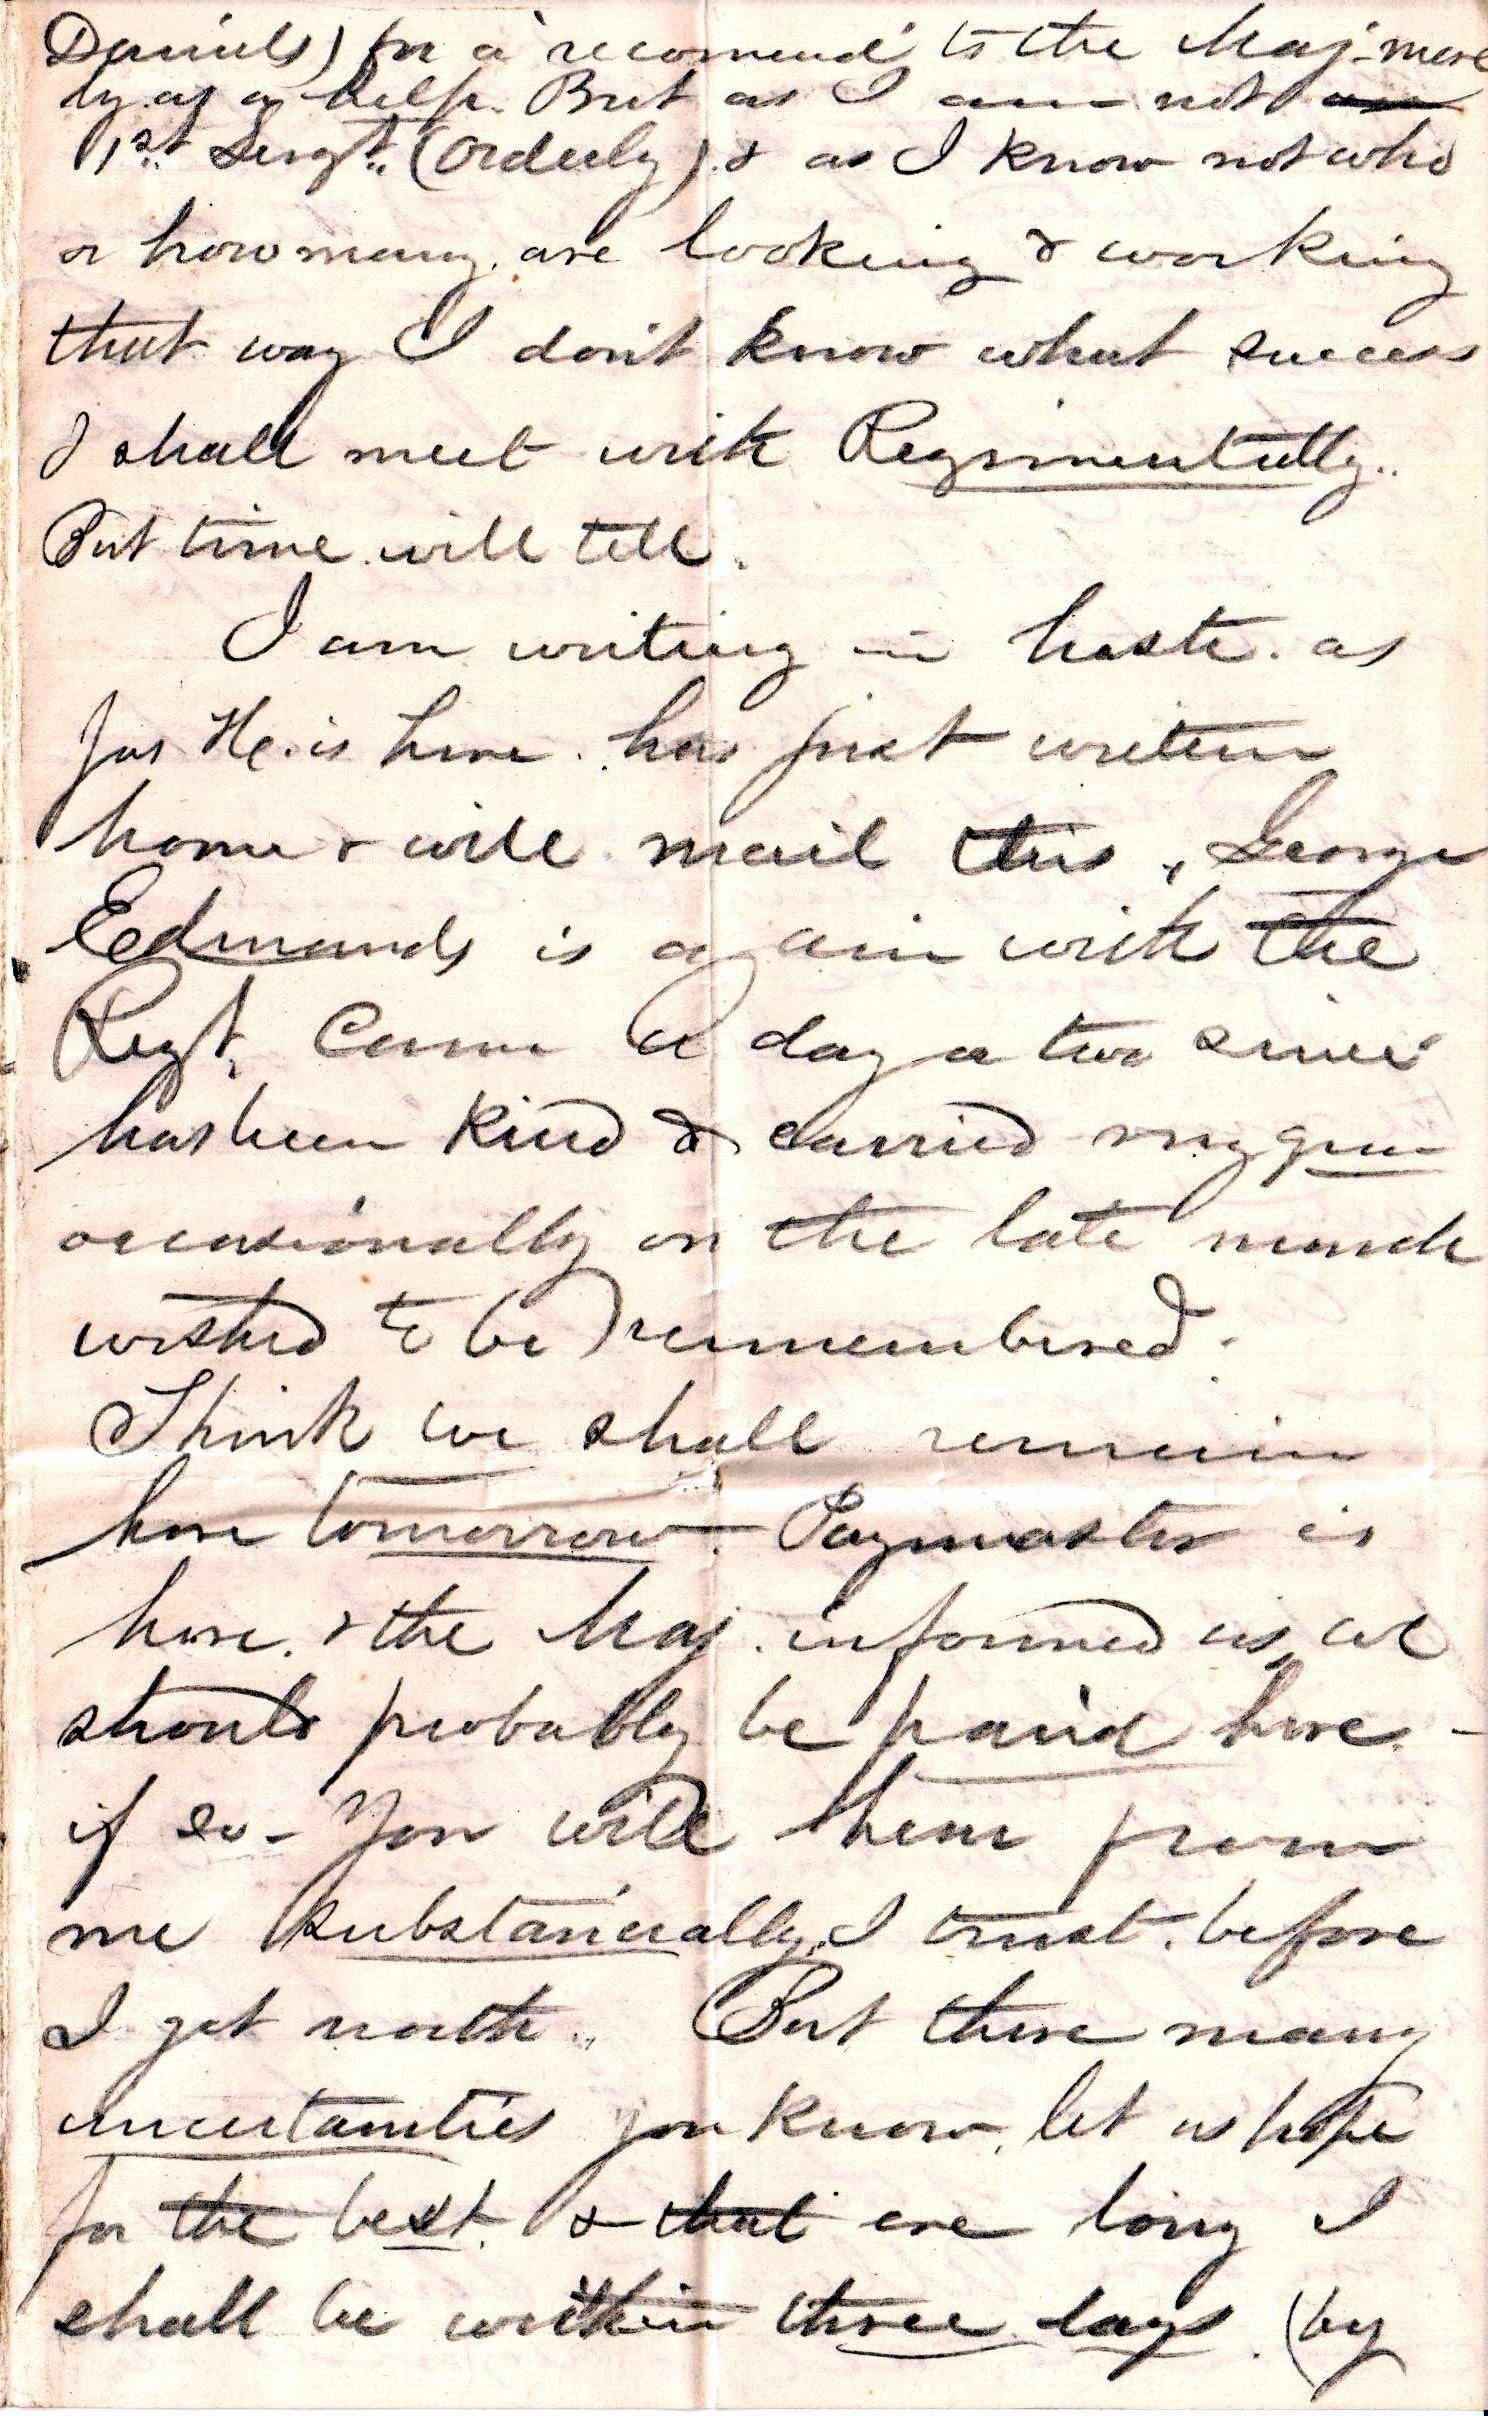 Daniels) for a recomend to the Maj. mere
ly as a help. But as I am not an
1st Sergt. (Orderly). & as I know not who
or how many. are looking & working
that way I don't know what success
I shall meet with Regimentally..
But time will tell.
I am writing in haste. as
Jas H. is here. has just writen
home & will mail this, George
Edmands is again with the
Regt, Came a day or two since
has been kind & carried my gun
occasionally on the late march
wished to be remembered.
Think we shall remain
here tomorrow. Paymaster is
here. & the Maj. informed us, we
should probably be paid here. -
if so - You will hear from
me substancially, I trust. before
I get north.. But there many
uncertanties you know, let us hope
for the best. & that ere long I
shall be within three days. (by